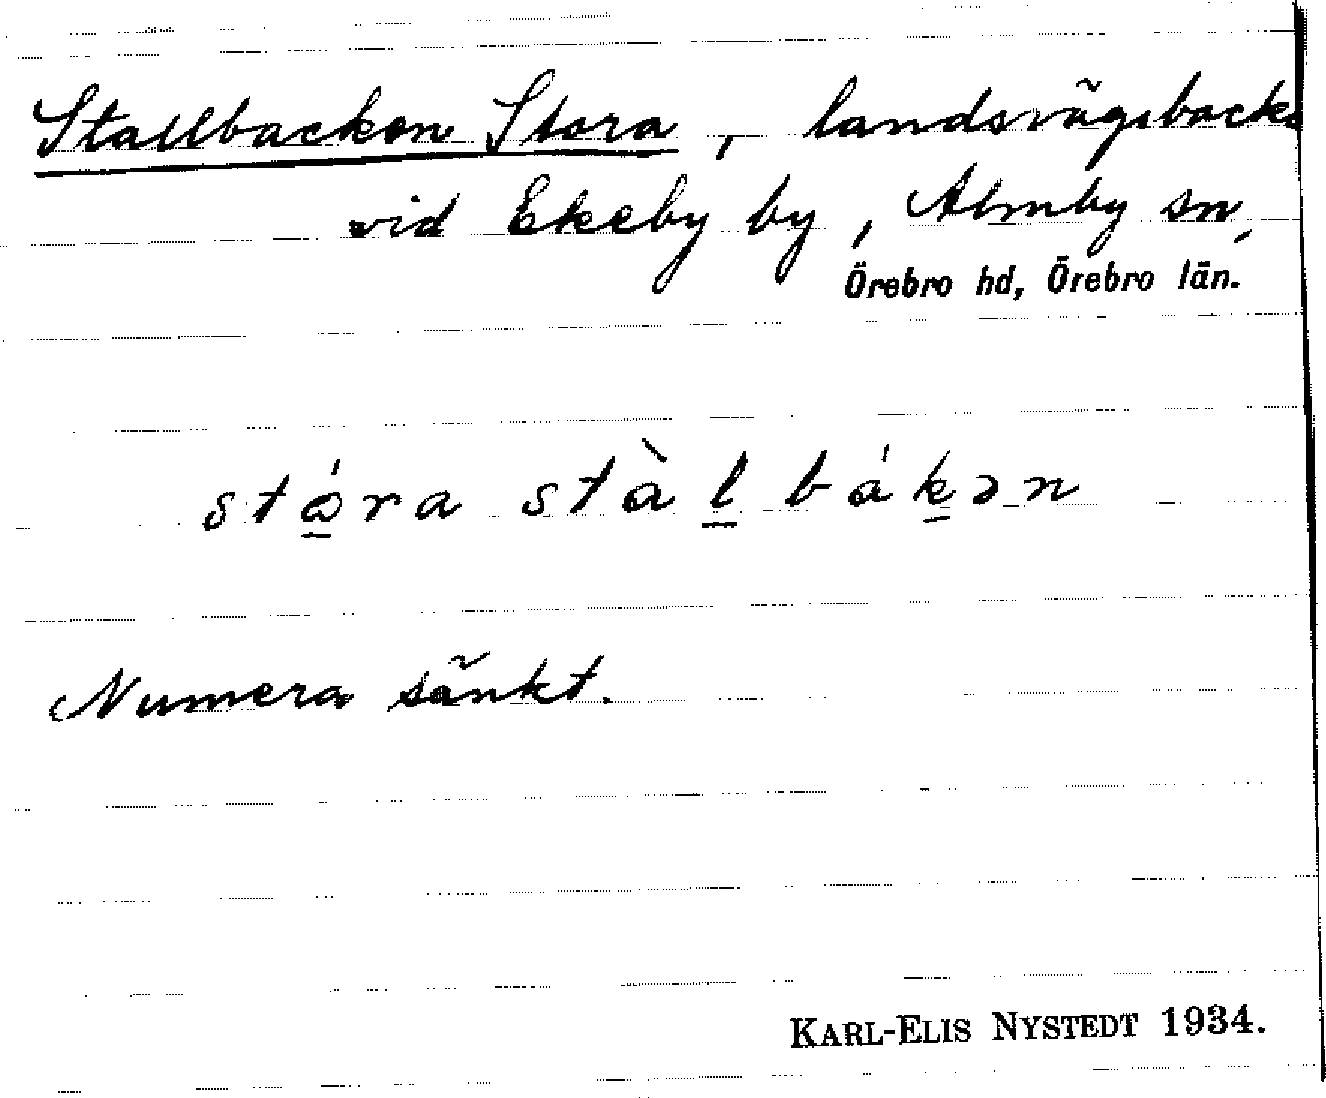 Stallbacken Stora, landsvägsbacke
vid Ekeby by, Almby sn,
Örebro hd, Örebro län.
stó̱ra stàl̲bák̲ən
Numera sänkt.
KARL-ELIS NYSTEDT 1934.